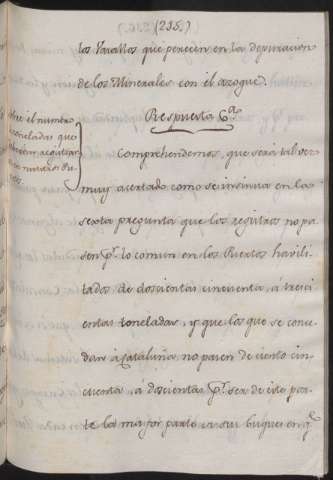 (235.)
los Vasallos que perecen en la depuracion
de los Minerales con el azogue.
Respuesta 6.ª
sobre el numero
toneladas que
registrar
Comprehendemos, que será tal ser
muy acertado como se insinua en la
sexta pregunta que los registros no pa
sen p.r lo comun en los Puertos havili
tados de doscientas cincuenta, á trecí
entas toneladas, y que los que se conce
dan a Cataluña, no pasen de ciento cin
cuenta, á doscientas p.r ser de este por
te la mayor parte en su buques en q.e